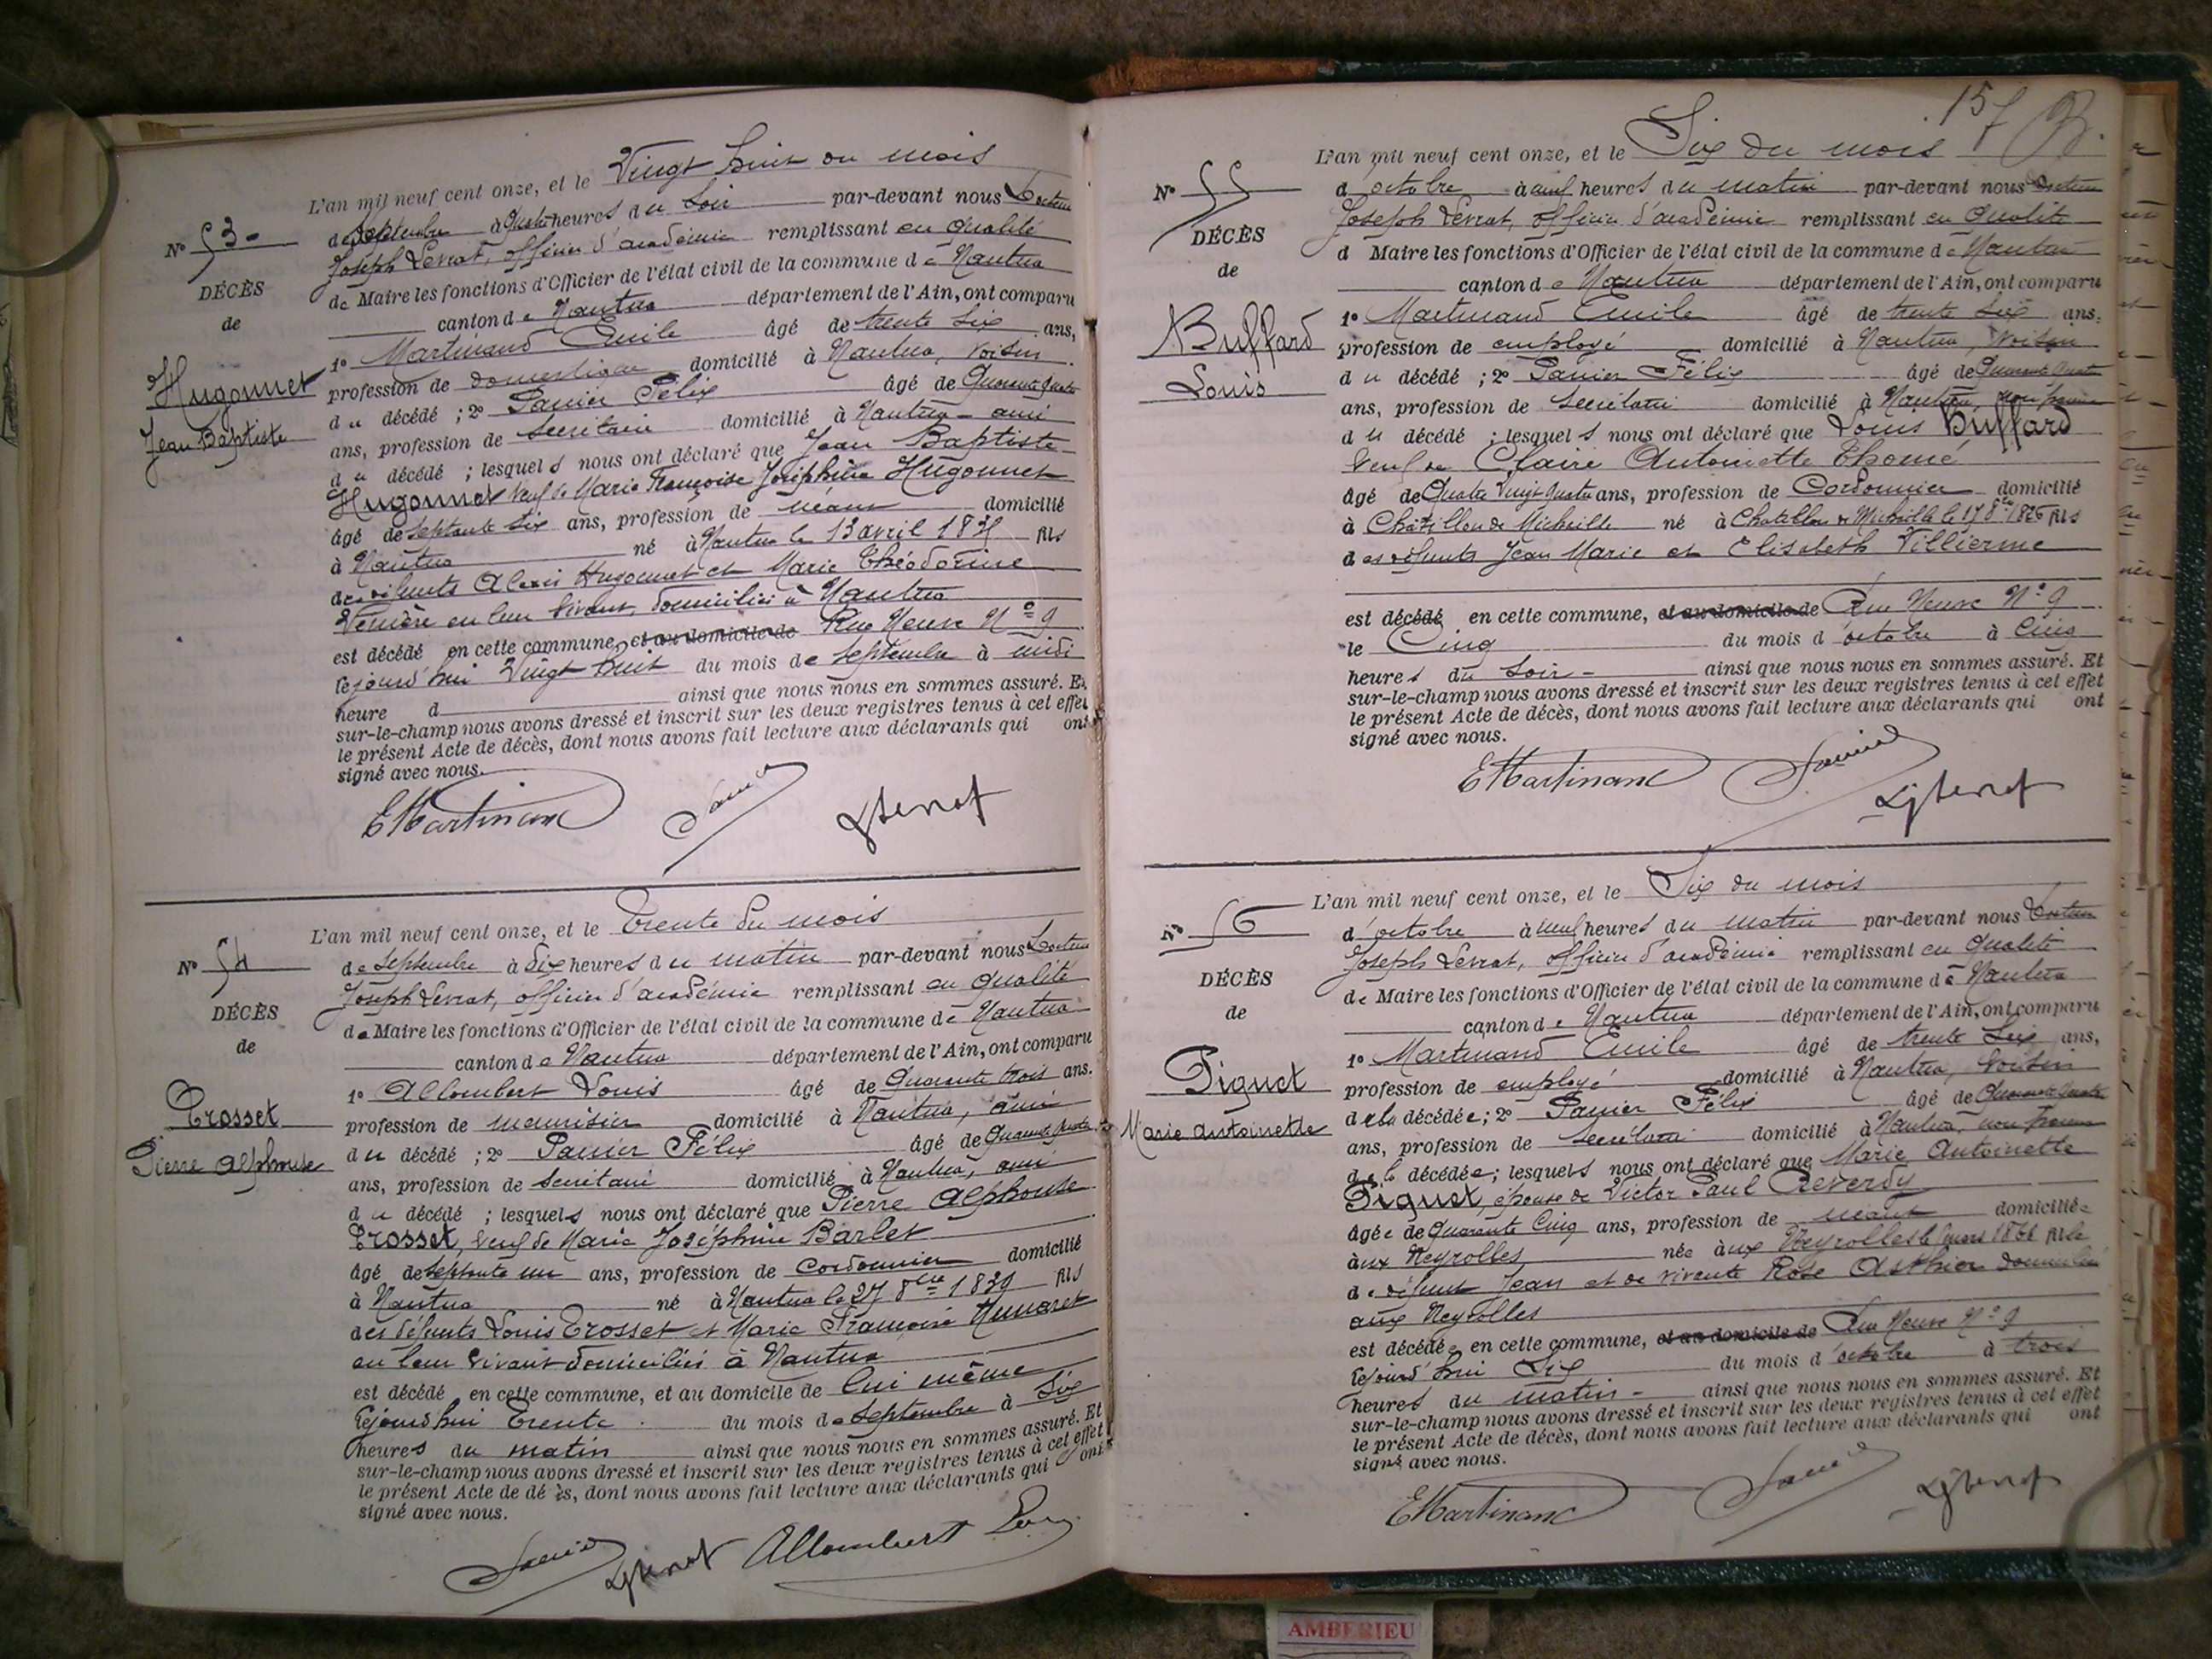 L'an mil neuf cent onze, et le Vingt huit du mois
de Septembre à quatre heures du Soir par-devant nous Docteur
Joseph Levrat, officier d'académie remplissant en qualité
de Maire les fonctions d'Officier de l'état civil de la commune de Nantua
canton de Nantua département de l'Ain, ont comparu
1º Martinand Emile âgé de trente six ans,
profession de domestique domicilié à Nantua, voisin
du décédé ; 2º Panier Félix âgé de Quarante quatre
ans, profession de Secrétaire domicilié à Nantua - ami
du décédé ; lesquels nous ont déclaré que Jean Baptiste
Hugonnet veuf de Marie Françoise Joséphine Hugonnet
âgé de septante six ans, profession de néant domicilié
à Nantua né à Nantua le 13 avril 1835 fils
des défunts Alexis Hugonnet et Marie Théodorine
en leur vivant, domiciliés à Nantua
est décédé en cette commune, et au domicile de Rue Neuve Nº 9
cejourd'hui Vingt huit du mois de Septembre à midi
heure d ainsi que nous nous en sommes assuré. Et
sur-le-champ nous avons dressé et inscrit sur les deux registres tenus à cet effet
le présent Acte de décès, dont nous avons fait lecture aux déclarants qui ont
signé avec nous.
Nº 53
DÉCÈS
de
Hugonnet
Jean Baptiste
EMartinand
L'an mil neuf cent onze, et le Trente du mois
de Septembre à dix heures du matin par-devant nous Docteur
Joseph Levrat, officier d'académie remplissant en qualité
de Maire les fonctions d'Officier de l'état civil de la commune de Nantua
canton de Nantua département de l'Ain, ont comparu
1º Allombert Louis âgé de Quarante trois ans.
profession de menuisier domicilié à Nantua, ami
du décédé ; 2º Panier Félix âgé de Quarante quatre
ans, profession de Secrétaire domicilié à Nantua, ami
du décédé ; lesquels nous ont déclaré que Pierre Alphonse
Trosset, veuf de Marie Joséphine Barlet
âgé de septante un ans, profession de Cordonnier domicilié
à Nantua né à Nantua le 27 8bre 1839 fils
des défunts Louis Trosset et Marie Françoise
en leur vivant domiciliés à Nantua
est décédé en cette commune, et au domicile de lui même
cejourd'hui Trente du mois de Septembre à Six
heures du matin ainsi que nous nous en sommes assuré. Et
sur-le-champ nous avons dressé et inscrit sur les deux registres tenus à cet effet
le présent Acte de décès, dont nous avons fait lecture aux déclarants qui ont
signé avec nous.
Nº 54
DÉCÈS
de
Trosset
Pierre Alphonse
Allombert
157
L'an mil neuf cent onze, et le Six du mois
d'octobre à neuf heures du matin par-devant nous Docteur
Joseph Levrat, officier d'académie remplissant en qualité
d Maire les fonctions d'Officier de l'état civil de la commune de Nantua
canton de Nantua département de l'Ain, ont comparu
1º Martinand Emile âgé de trente six ans.
profession de employé domicilié à Nantua, voisin
du décédé ; 2º Panier Félix âgé de Quarante quatre
ans, profession de Secrétaire domicilié à Nantua, non parent
du décédé ; lesquels nous ont déclaré que Louis Buffard
veuf de Claire Antoinette Thomé
âgé de Quatre Vingt Quatre ans, profession de Cordonnier domicilié
à Châtillon de Michaille né à Chatillon de Michaille le 17 8bre 1826 fils
des défunts Jean Marie et Elisabeth Villierme
est décédé en cette commune, et au domicile de Rue Neuve Nº 9
le Cinq du mois d'octobre à Cinq
heures du Soir - ainsi que nous nous en sommes assuré. Et
sur-le-champ nous avons dressé et inscrit sur les deux registres tenus à cet effet
le présent Acte de décès, dont nous avons fait lecture aux déclarants qui ont
signé avec nous.
Nº 55
DÉCÈS
de
Buffard
Louis
EMartinand
L'an mil neuf cent onze, et le Six du mois
d'octobre à neuf heures du matin par-devant nous Docteur
Joseph Levrat, officier d'académie remplissant en qualité
de Maire les fonctions d'Officier de l'état civil de la commune de Nantua
canton de Nantua département de l'Ain, ont comparu
1º Martinand Emile âgé de trente Six ans,
profession de employé domicilié à Nantua, voisin
de la décédée ; 2º Panier Félix âgé de Quarante quatre
ans, profession de Secrétaire domicilié à Nantua, non parent
de la décédée ; lesquels nous ont déclaré que Marie Antoinette
Piguet, épouse de Victor Paul Reverdy
âgée de Quarante Cinq ans, profession de néant domiciliée
aux Neyrolles née aux Neyrolles le mars 1866 fille
de défunt Jean et de vivante Rose Asthier domiciliée
aux Neyrolles
est décédée en cette commune, et au domicile de Rue Neuve Nº 9
cejourd'hui Six du mois d'octobre à trois
heures du matin - ainsi que nous nous en sommes assuré. Et
sur-le-champ nous avons dressé et inscrit sur les deux registres tenus à cet effet
le présent Acte de décès, dont nous avons fait lecture aux déclarants qui ont
signé avec nous.
Nº 56
DÉCÈS
de
Piguet
Marie Antoinette
EMartinand
AMBERIEU